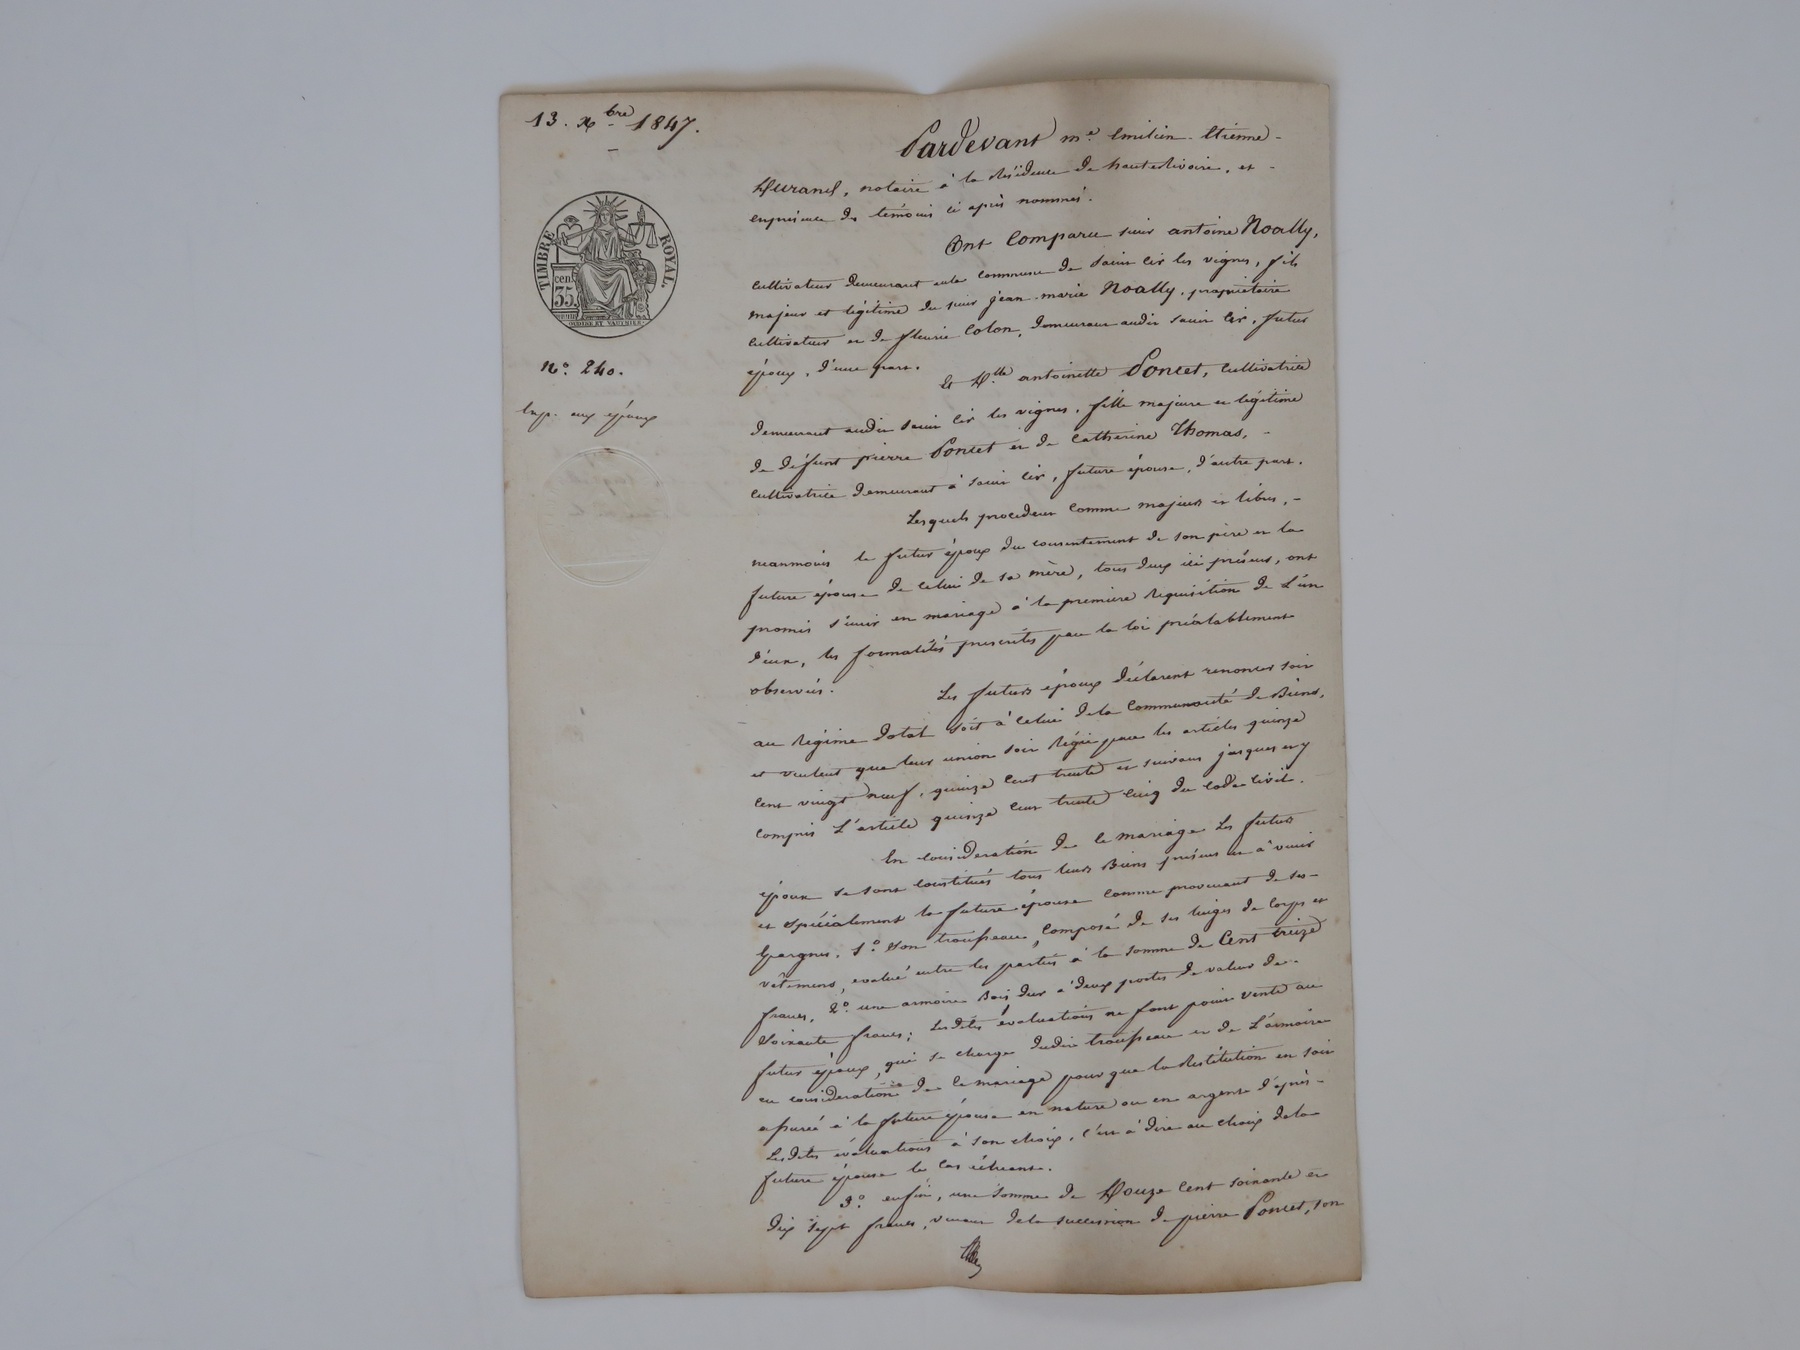 13. Xbre 1847.
TIMBRE ROYAL.
cent.
35.
N.° 240.
Exp. aux époux
Pardevant m.e Emilien-Etienne-
Durand, notaire à la Résidence de hauterivoire, et -
enprésence des témoins ci après nommés.
Ont Comparu sieur antoine Noally,
cultivateur demeurant enla commune de saint Cir les vignes, fils
majeur et légitime du sieur jean-marie Noally, propriétaire
cultivateur et de fleurie Colon, demeurant audit saint Cir, futur
époux, d'une part.
Et D.lle antoinette Poncet, Cultivatrice
demeurant audit saint Cir les vignes, fille majeure et légitime
de défunt pierre Poncet et de Catherine Thomas, -
cultivatrice demeurant à saint Cir, future épouse, d'autre part.
Lesquels procédent comme majeurs et libres, -
néanmoins le futur époux du consentement de son père et la
future épouse de celui de sa mère, tous deux ici présens, ont
promis s'unir en mariage à la première Réquisition de L'un
d'eux, les formalités prescrites par la loi préalablement
observées.
Les futurs époux déclarent renoncer soit
au Régime dotal soit à celui dela Communauté de Biens,
et veulent que leur union soit Régie par les articles quinze
cent vingt neuf, quinze cent trente et suivans jusques et y
compris L'article quinze cent trente cinq du Code Civil.
En considération de ce mariage Les futurs
époux se sont constitués tous leurs Biens présens et à venir
et spécialement la future épouse comme provenant de ses -
Epargnes, 1.° Son trousseau, composé de ses linges de Corps et
vêtemens, evalué entre les parties à la somme de Cent treize
francs, 2.° une armoire Bois dur à deux portes de valeur de -
Soixante francs; Lesdites évaluations ne font point vente au
futur époux, qui se charge dudit trousseau et de L'armoire
en considération de ce mariage pour que la Restitution en soit
assurée à la future épouse en nature ou en argent d'après -
Lesdites évaluations à son choix, c'est à dire au choix dela
future épouse le cas échéant.
3.° enfin, une somme de Douze Cent soixante et
dix sept francs, venant dela succession de pierre Poncet, son